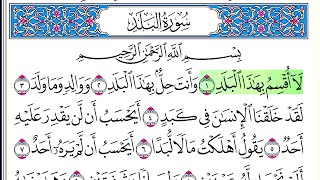 سُورَةُ الْبَلَدِ
بِسْمِ اللَّهِ الرَّحْمَٰنِ الرَّحِيمِ
لَا أُقْسِمُ بِهَٰذَا الْبَلَدِ ١ وَأَنتَ حِلٌّ بِهَٰذَا الْبَلَدِ ٢ وَوَالِدٍ وَمَا وَلَدَ ٣
لَقَدْ خَلَقْنَا الْإِنسَٰنَ فِي كَبَدٍ ٤ أَيَحْسَبُ أَن لَّن يَقْدِرَ عَلَيْهِ
أَحَدٌ ٥ يَقُولُ أَهْلَكْتُ مَالًا لُّبَدًا ٦ أَيَحْسَبُ أَن لَّمْ يَرَهُ أَحَدٌ ٧